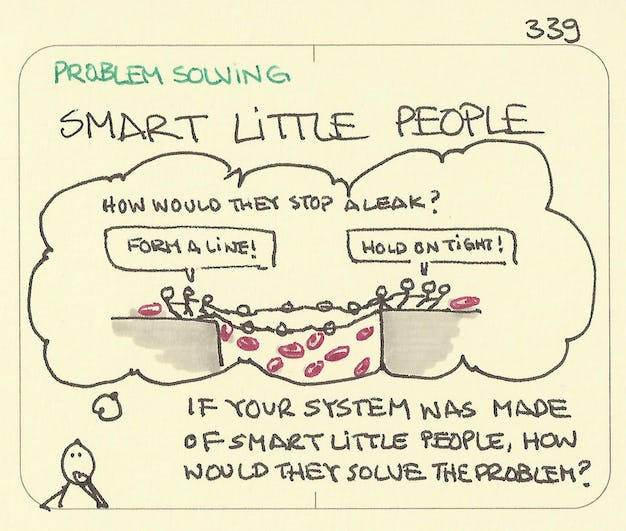 339
PROBLEM SOLVING
SMART LITTLE PEOPLE
HOW WOULD THEY STOP A LEAK?
FORM A LINE!
HOLD ON TIGHT!
IF YOUR SYSTEM WAS MADE
OF SMART LITTLE PEOPLE, HOW
WOULD THEY SOLVE THE PROBLEM?